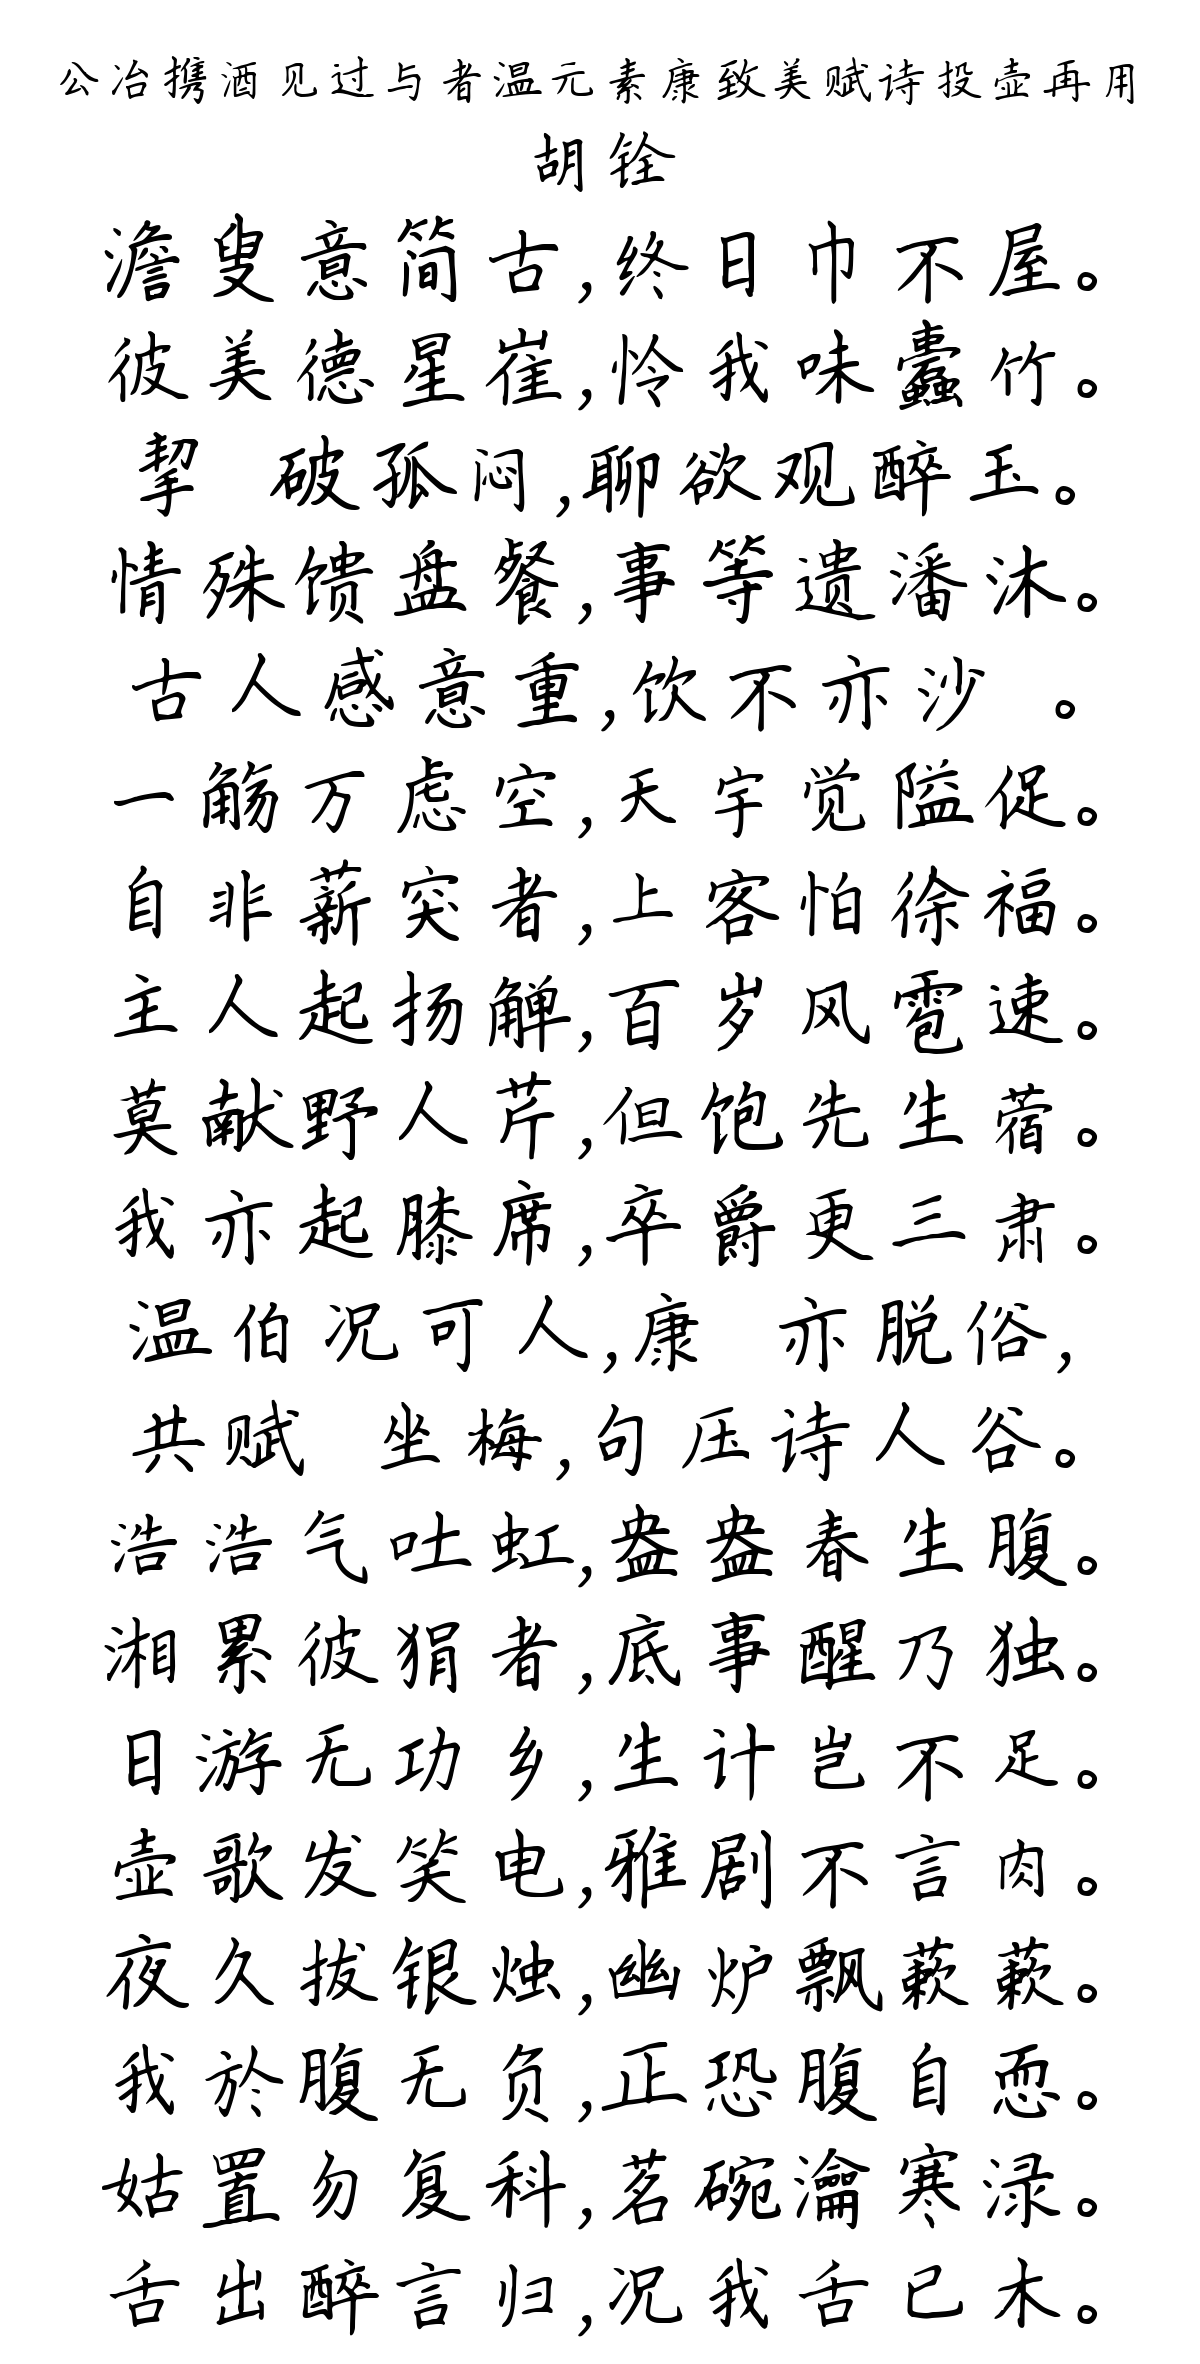 公冶携酒见过与者温元素康致美赋诗投壶再用
胡铨
澹叟意简古,终日巾不屋。
彼美德星崔,怜我味蠹竹。
挈 破孤闷,聊欲观醉玉。
情殊馈盘餐,事等遗潘沐。
古人感意重,饮不亦沙 。
一觞万虑空,天宇觉隘促。
自非薪突者,上客怕徐福。
主人起扬觯,百岁风雹速。
莫献野人芹,但饱先生蓿。
我亦起膝席,卒爵更三肃。
温伯况可人,康 亦脱俗,
共赋 坐梅,句压诗人谷。
浩浩气吐虹,盎盎春生腹。
湘累彼狷者,底事醒乃独。
日游无功乡,生计岂不足。
壶歌发笑电,雅剧不言肉。
夜久拔银烛,幽炉飘蔌蔌。
我於腹无负,正恐腹自恧。
姑置勿复科,茗碗瀹寒渌。
舌出醉言归,况我舌已木。